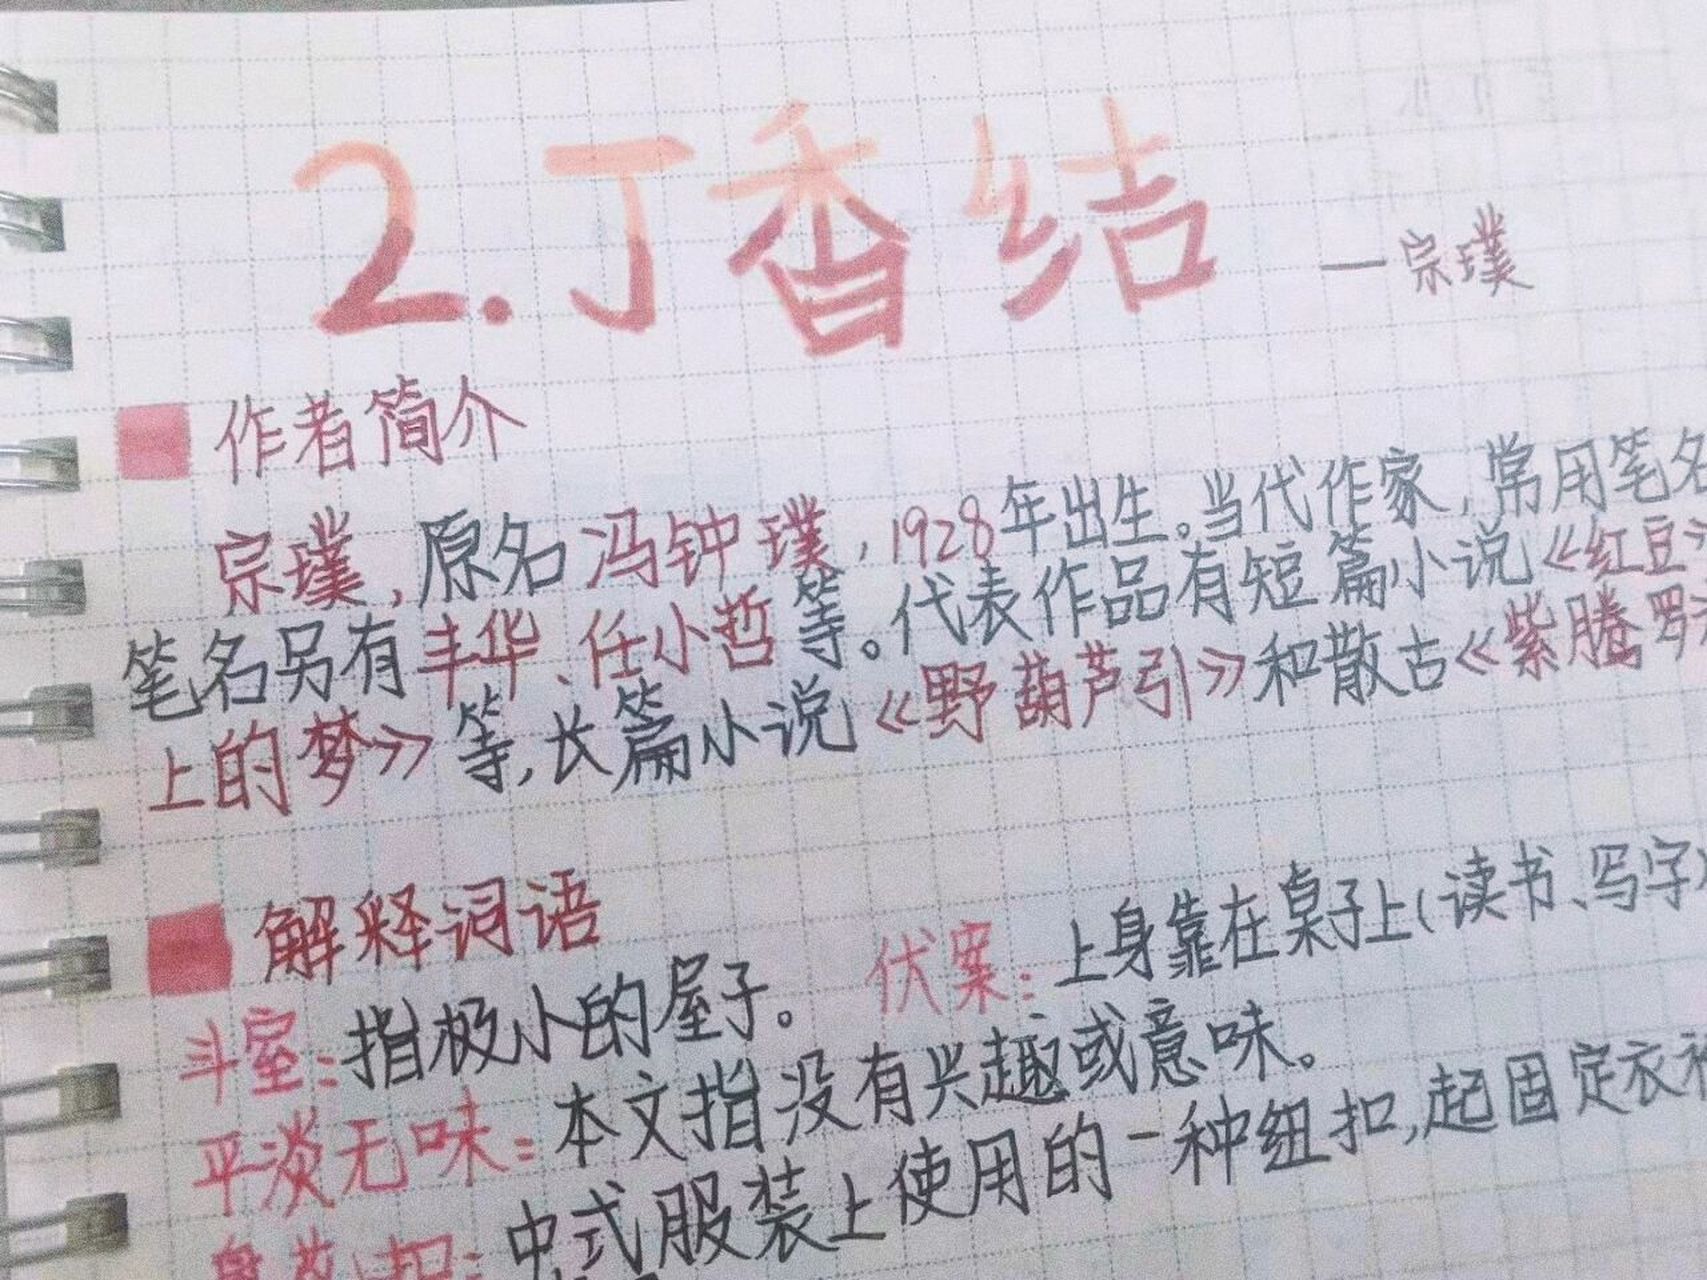 2.丁香结
—宗璞
作者简介
宗璞,原名冯钟璞,1928年出生。当代作家,常用笔名
笔名另有丰华、任小哲等。代表作品有短篇小说《红豆
上的梦》等,长篇小说《野葫芦引》和散古《紫腾罗
解释词语
斗室:指极小的屋子。 伏案:上身靠在桌子上(读书、写字
平淡无味:本文指没有兴趣或意味。
中式服装上使用的一种纽扣,起固定衣